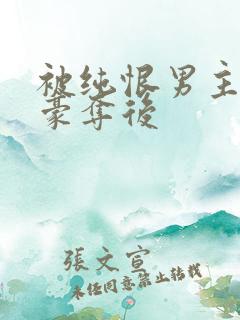 被纯恨男主
豪夺後
張文宣
未经同意禁止转载